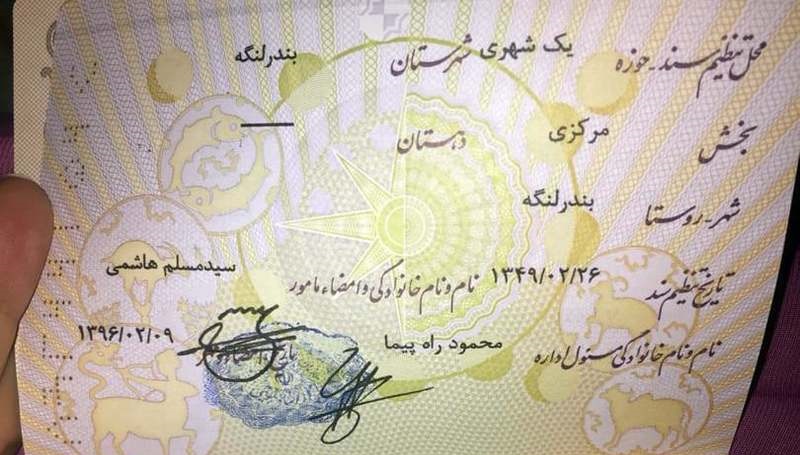 محل تنظیم سند - حوزه یک شهری شهرستان بندرلنگه
بخش مرکزی دهستان ــــ
شهر - روستا بندرلنگه
تاریخ تنظیم سند ۱۳۴۹/۰۲/۲۶ نام و نام خانوادگی و امضاء مامور سیدمسلم هاشمی
نام و نام خانوادگی مسئول اداره محمود راه پیما تاریخ امضاء و مهر ۱۳۹۶/۰۲/۰۹